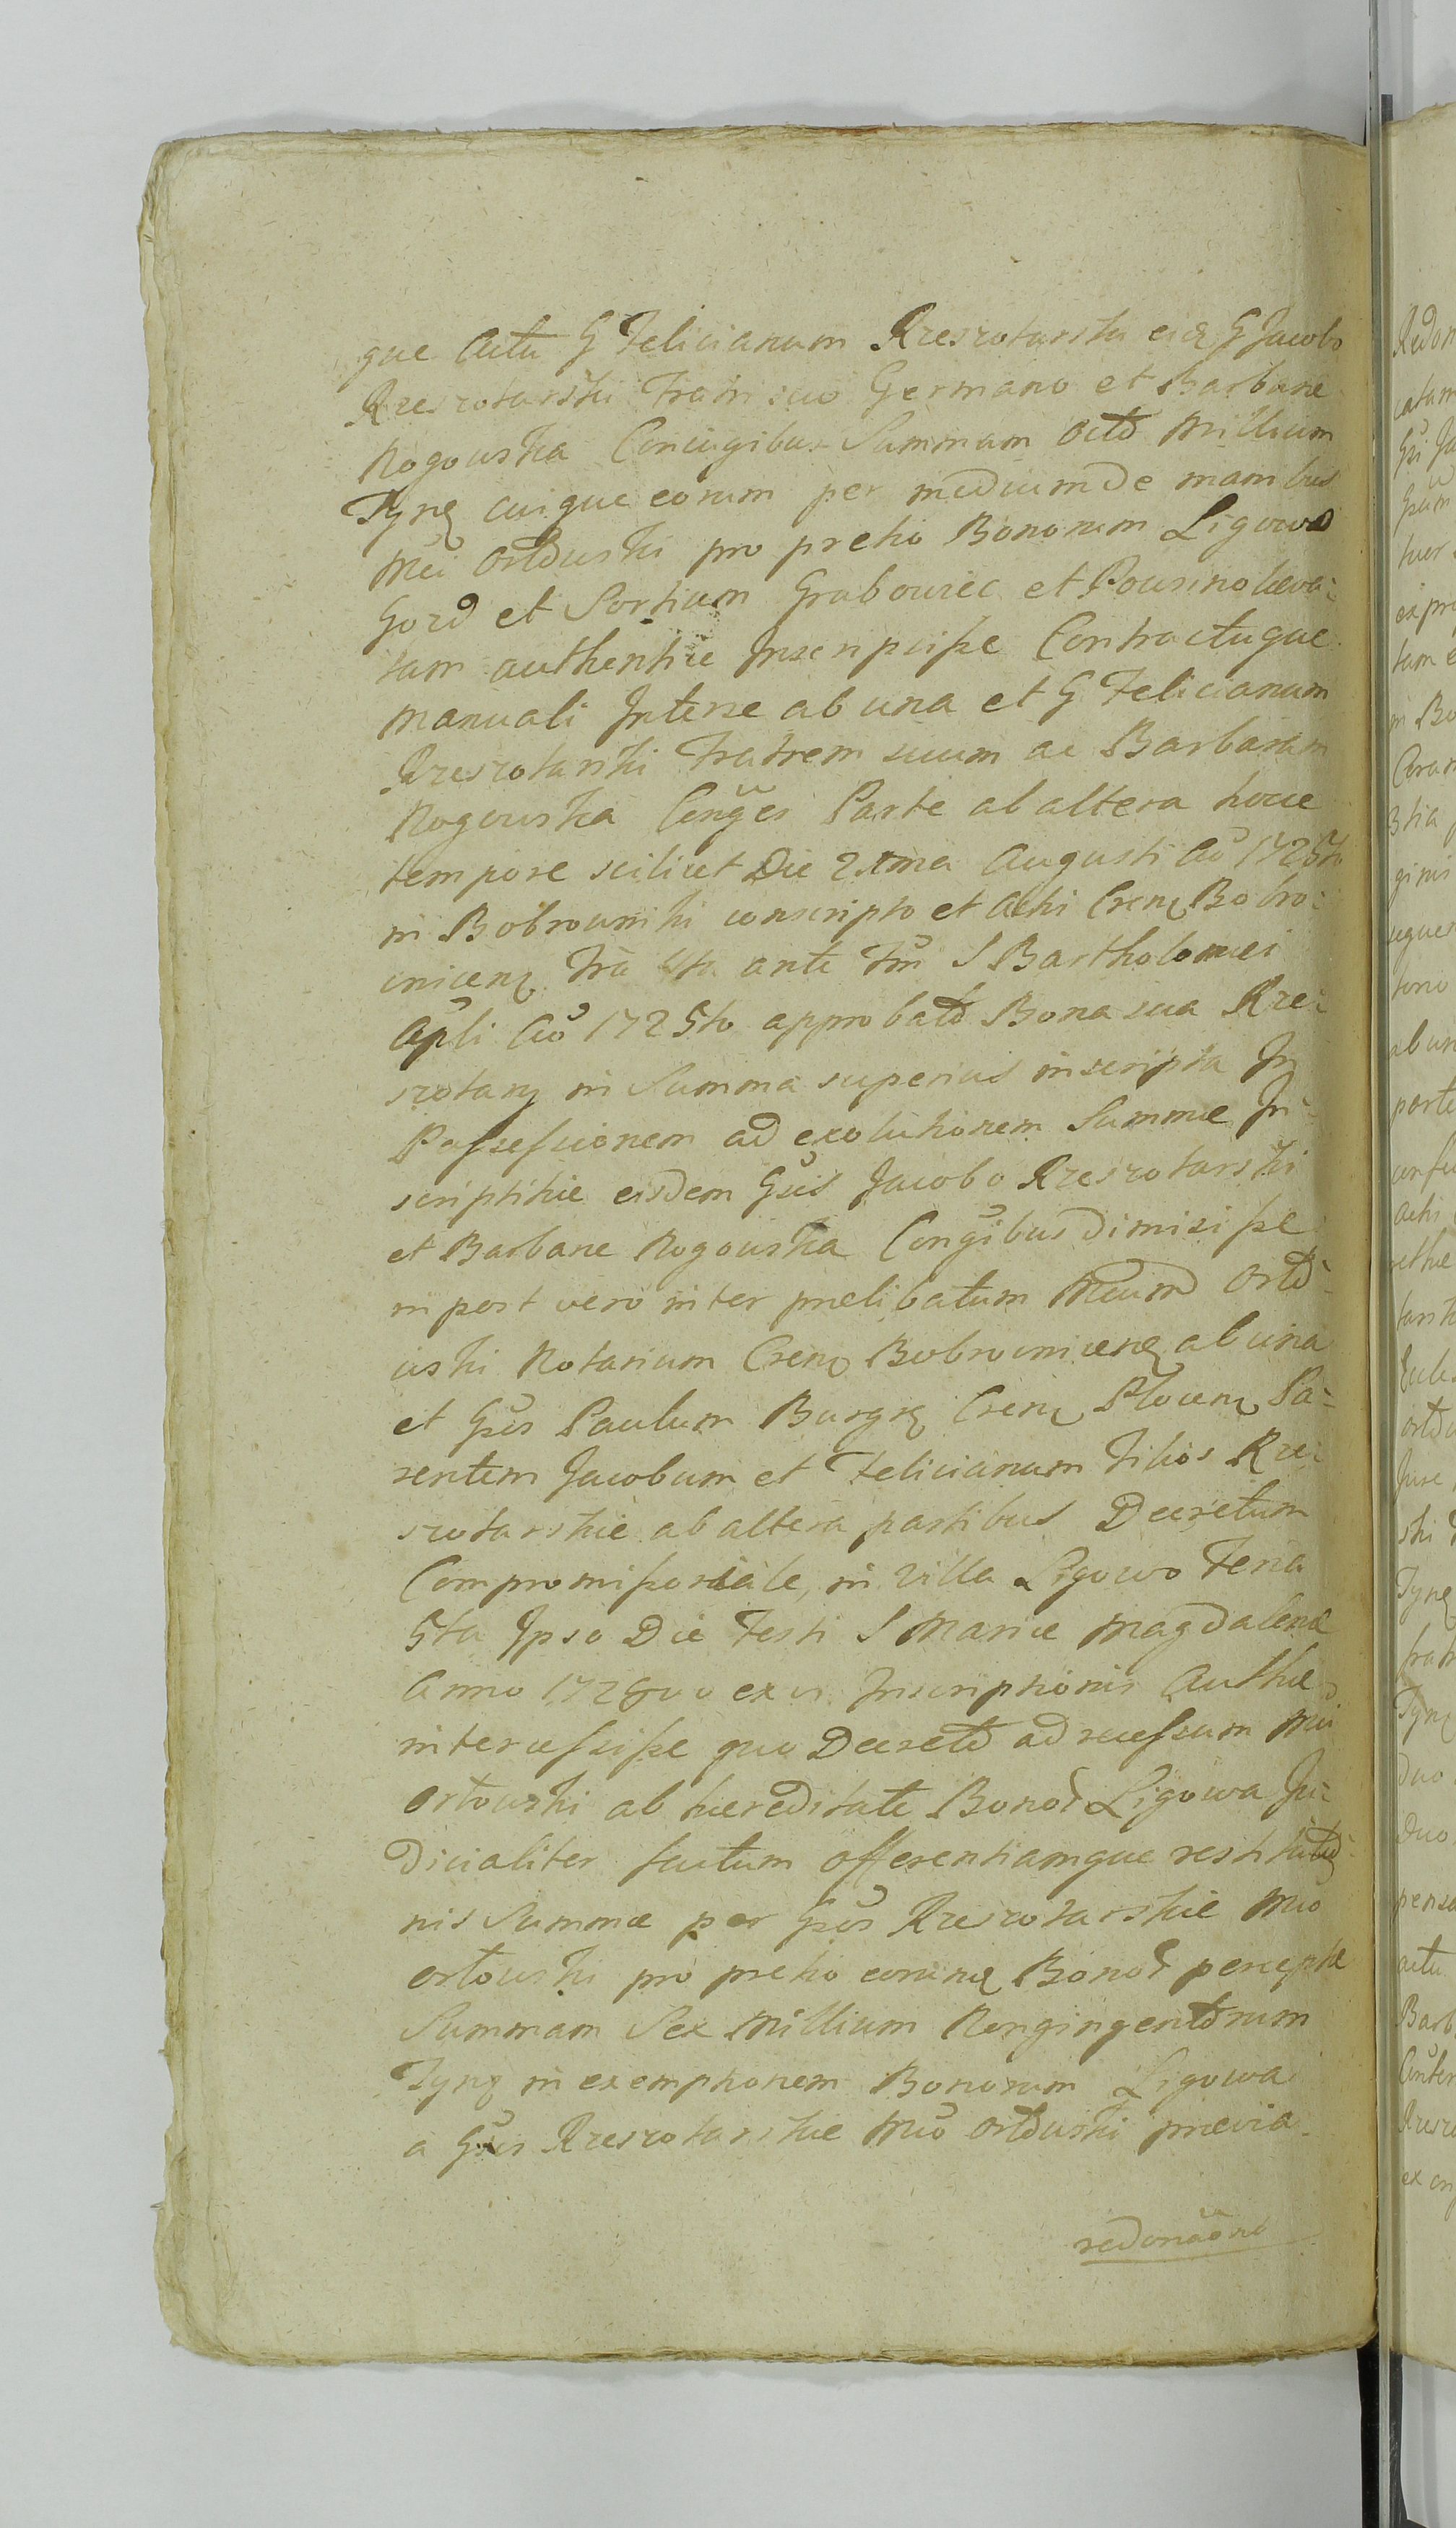 que Actu G Felicianum Rzeszotarski eid G Jacobo
Rzeszotarski Fratri suo Germano et Barbaræ
Rogowska Coniugibus Summam Octo Millium
Tynf cuique eorum per medium de manibus
Mci Orłowski pro pretio Bonorum Ligowo
Gozd et Sortium Grabowiec et Powsino leva-
tam authentice Inscripsisse Contractuque
Manuali Inter se ab una et G Felicianum
Rzeszotarski Fratrem suum ac Barbaram
Rogowska Conges Parte ab altera hocce
tempore scilicet Die 21ma Augusti Ao 1725to
in Bobrowniki conscripto et Actis Cren Bobro-
vnicen Fra 4ta ante Fm S Bartholomei
Apli Ao 1725to approbato Bona sua Rze-
szotary in Summa superius inscripta In
Possessionem ad exolutionem Summæ In-
scriptitiæ eisdem Gsis Jacobo Rzeszotarski
et Barbaræ Rogowska Congibus dimisisse
in post vero inter prælibatum Mcum Orło-
wski Notarium Cren Bobrownicen ab una
et Gsos Paulum Burgr Cren Plocen Pa-
rentem Jacobum et Felicianum Filios Rze-
szotarskie ab altera partibus Decretum
Compromissoriale, in Villa Ligowo Feria
5ta Ipso Die Festi S Mariæ Magdalenæ
Anno 1728vo ex vi Inscriptionis Authæ
intercessisse quo Decreto ad recessum Mci
Orłowski ab hæreditate Bonor Ligowa Ju-
dicialiter factum offerentiamque restitutio-
nis Summæ per Gsos Rzeszotarskie Mco
Orłowski pro pretio eorund Bonor perceptæ
Summam Sex Millium Nongingentorum
Tynf in exemptionem Bonorum Ligowa
a Gsis Rzeszotarskie Mco Orłowski prævia
redonaone